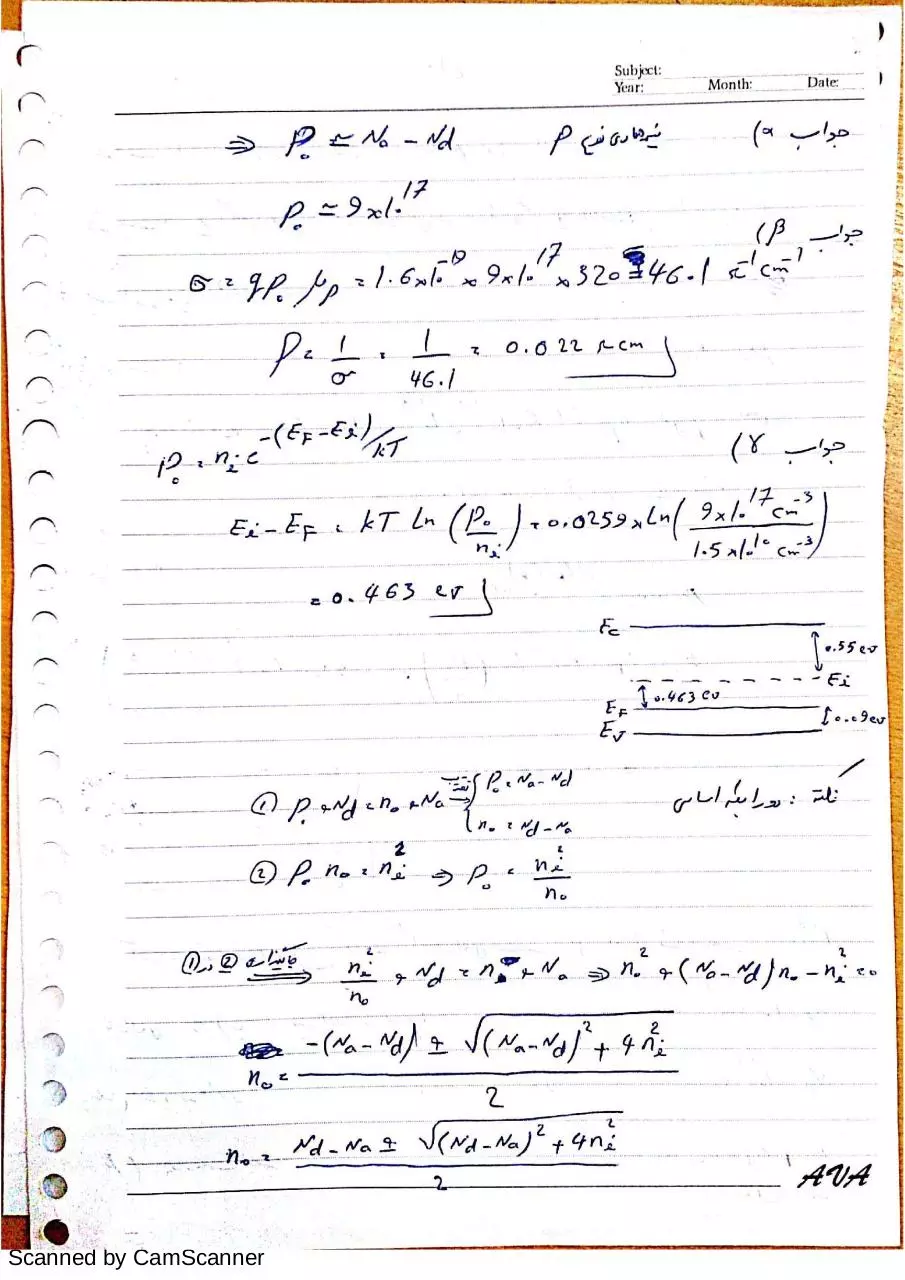 Subject:
Year: Month: Date:
جواب α) نیمه هادی نوع P ⇒ P₀ ≃ Na - Nd
P₀ ≃ 9×10¹⁷
جواب β)
σ = qP₀ μp = 1.6×10⁻¹⁹ × 9×10¹⁷ × 320 = 46.1 Ω⁻¹cm⁻¹
ρ = 1/σ = 1/46.1 = 0.022 Ωcm
جواب γ) P₀ = nᵢe^(-(E_F-Eᵢ)/kT)
Eᵢ-E_F = kT Ln (P₀/nᵢ) = 0.0259 × Ln(9×10¹⁷ cm⁻³ / 1.5×10¹⁰ cm⁻³)
= 0.463 ev
Ec
0.55 ev
Eᵢ
0.463 ev
E_F
0.09 ev
Ev
نکته : دو رابطه اساسی
① P₀ + Nd = n₀ + Na ⇒ تقریب { P₀ = Na - Nd
n₀ = Nd - Na
② P₀ n₀ = nᵢ² ⇒ P₀ = nᵢ²/n₀
جایگذاری ② در ① ⇒ nᵢ²/n₀ + Nd = n₀ + Na ⇒ n₀² + (Na - Nd) n₀ - nᵢ² = 0
n₀ = (-(Na - Nd) ± √((Na - Nd)² + 4nᵢ²)) / 2
n₀ = (Nd - Na ± √((Nd - Na)² + 4nᵢ²)) / 2
AVA
Scanned by CamScanner